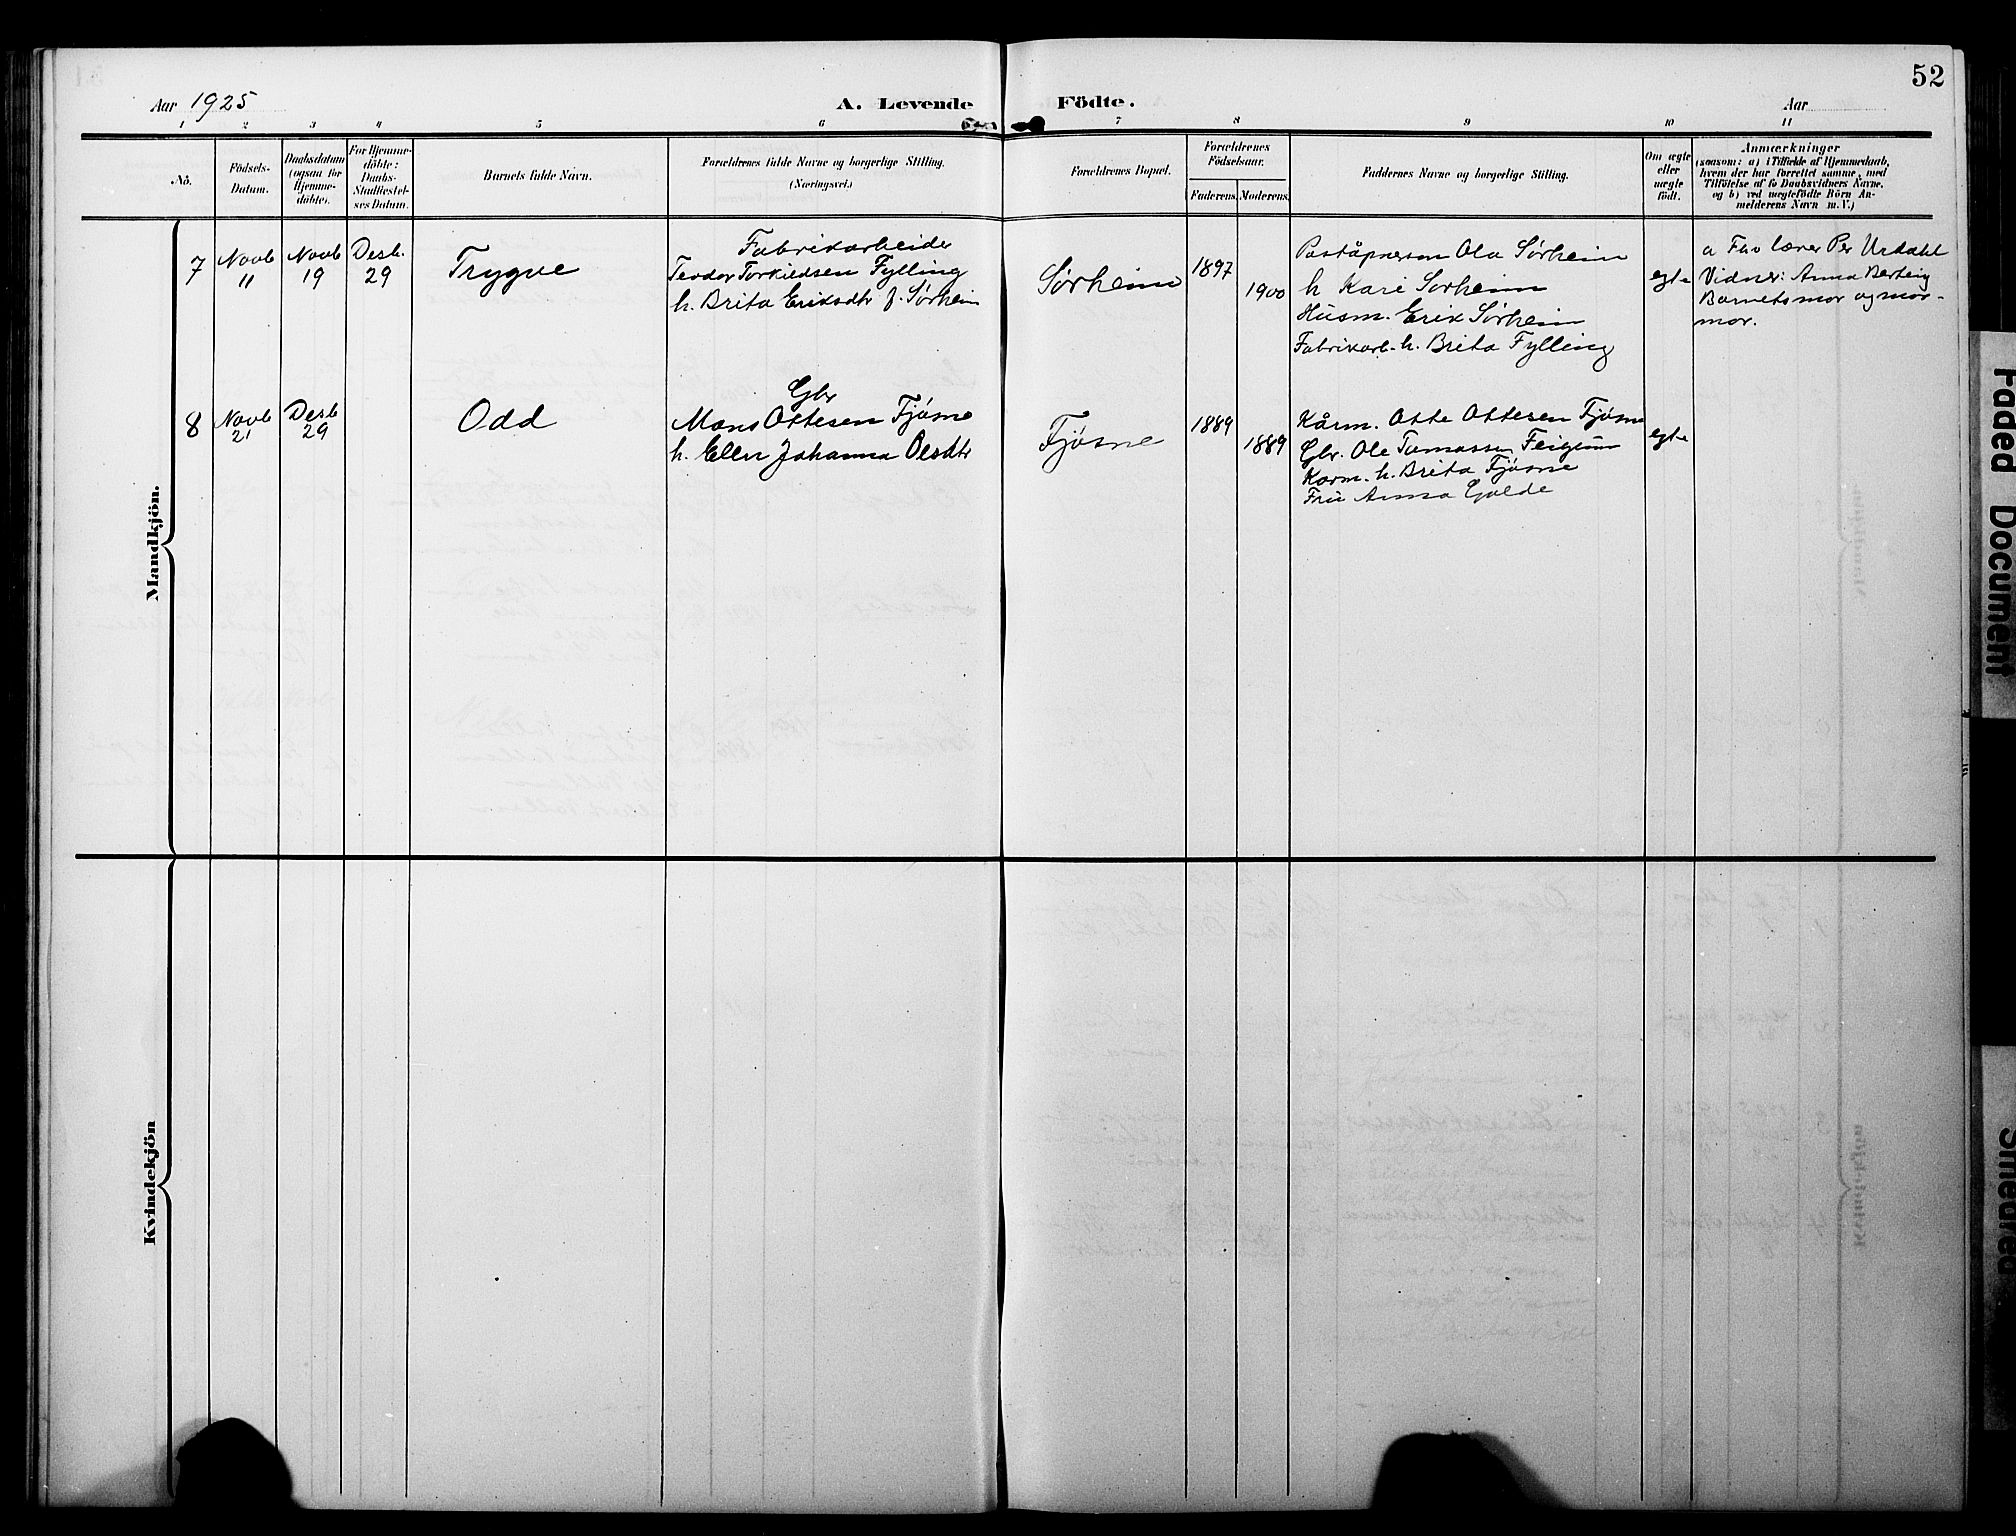 52
Aar 1925
A. Levende Födte.
Aar
1 2 3 4 5 6 7 8 9 10 11
No.
Födsels-
Datum.
Daabsdatum
(ogsaa for
Hjemme-
döbte).
For Hjemme-
döbte:
Daabs-
Stadfæstel-
ses Datum.
Barnets fulde Navn.
Forældrenes fulde Navne og borgerlige Stilling.
(Næringsvei.)
Forældrenes Bopæl.
Forældrenes
Födselsaar.
Faderens. Moderens.
Faddernes Navne og borgerlige Stilling.
Om ægte
eller
uægte
födt.
Anmærkninger
(saasom: a) i Tilfælde af Hjemmedaab,
hvem der har forrettet samme, med
Tilföielse af to Daabsvidners Navne,
og b) ved uægtefödte Börn An-
melderens Navn m. V.)
Mandkjön.
7
Novb
11
Novb
19
Desb.
29
Trygve
Fabrikarbeider
Teodor Torkildsen Fylling
h. Brita Eriksdtr f. Sørheim
Sørheim
1897
1900
Poståpneren Ola Sørheim
h Kari Sørheim
Husm. Erik Sørheim
Fabrikarb. h. Brita Fylling
egte
a Fhv lærer Per Urdahl
Vidner: Anna Berteig
Barnets mor og mor-
mor.
8
Novb
21
Desb
29
Odd
Gbr
Mons Ottesen Fjøsne
h. Ellen Johanna Olsdtr
Fjøsne
1889
1889
Kårm. Otte Ottesen Fjøsne
Gbr. Ole Tomassen Feigum
Karm. h. Brita Fjøsne
Fru Anna Galde
egte
Kvindekjön
Faded Document
Smeared